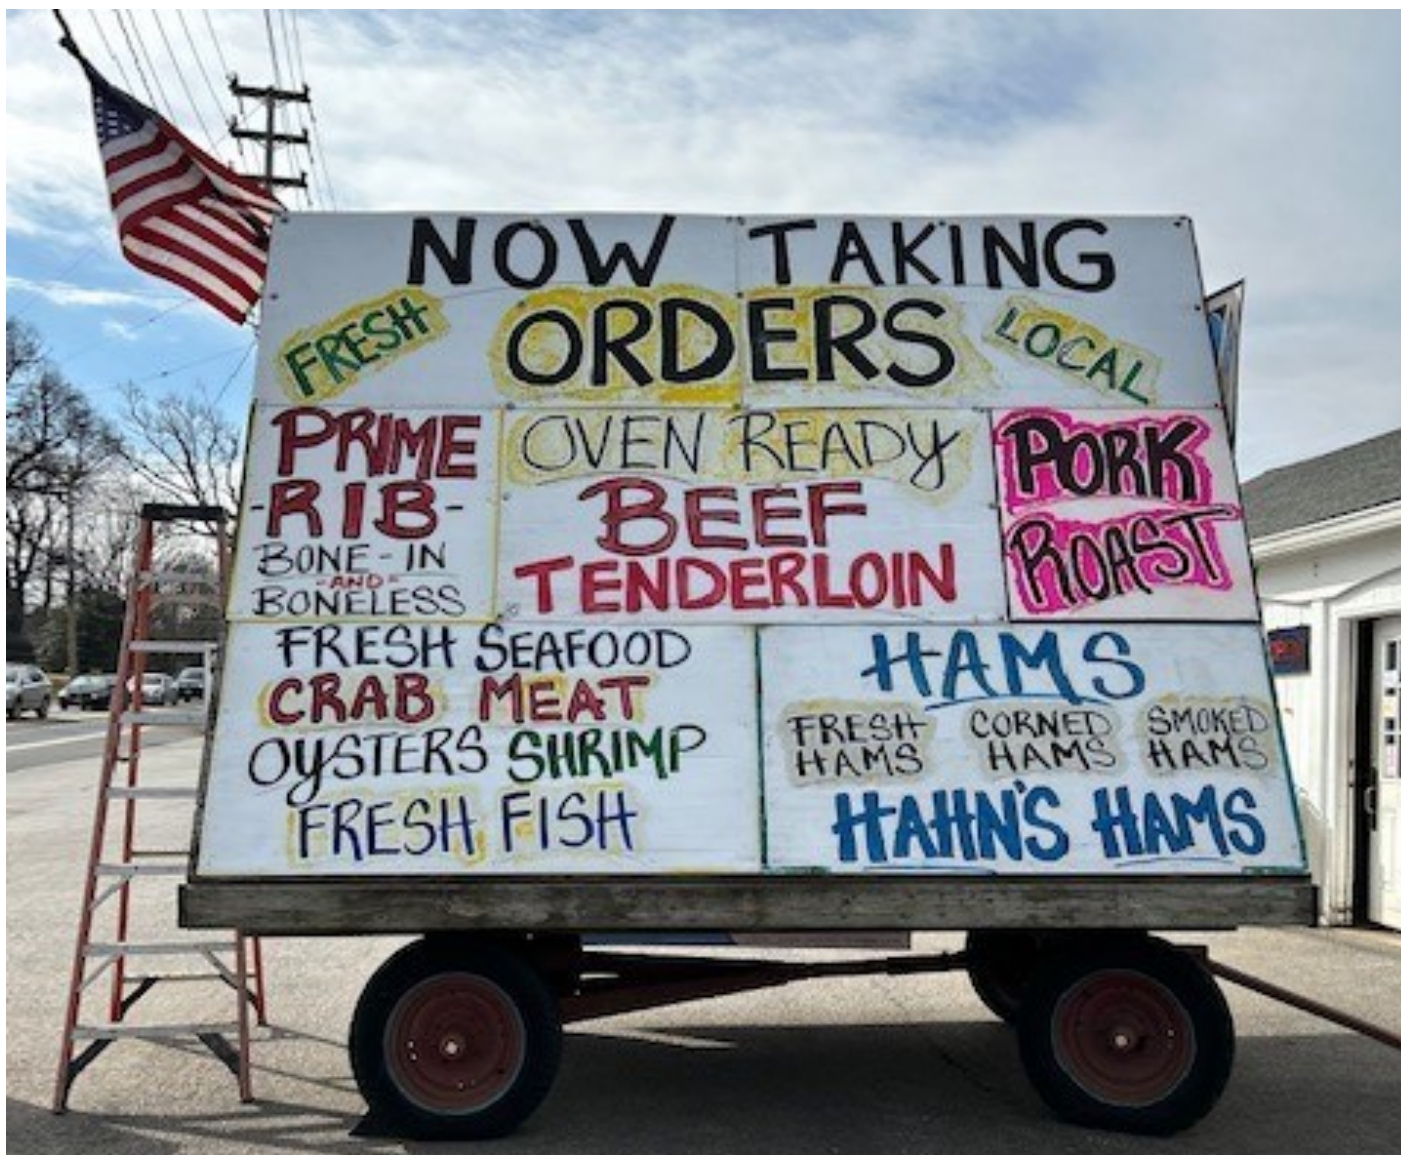 NOW TAKING
FRESH ORDERS LOCAL
PRIME
-RIB-
BONE-IN
-AND-
BONELESS
OVEN READY
BEEF
TENDERLOIN
PORK
ROAST
FRESH SEAFOOD
CRAB MEAT
OYSTERS SHRIMP
FRESH FISH
HAMS
FRESH HAMS
CORNED HAMS
SMOKED HAMS
HAHN'S HAMS